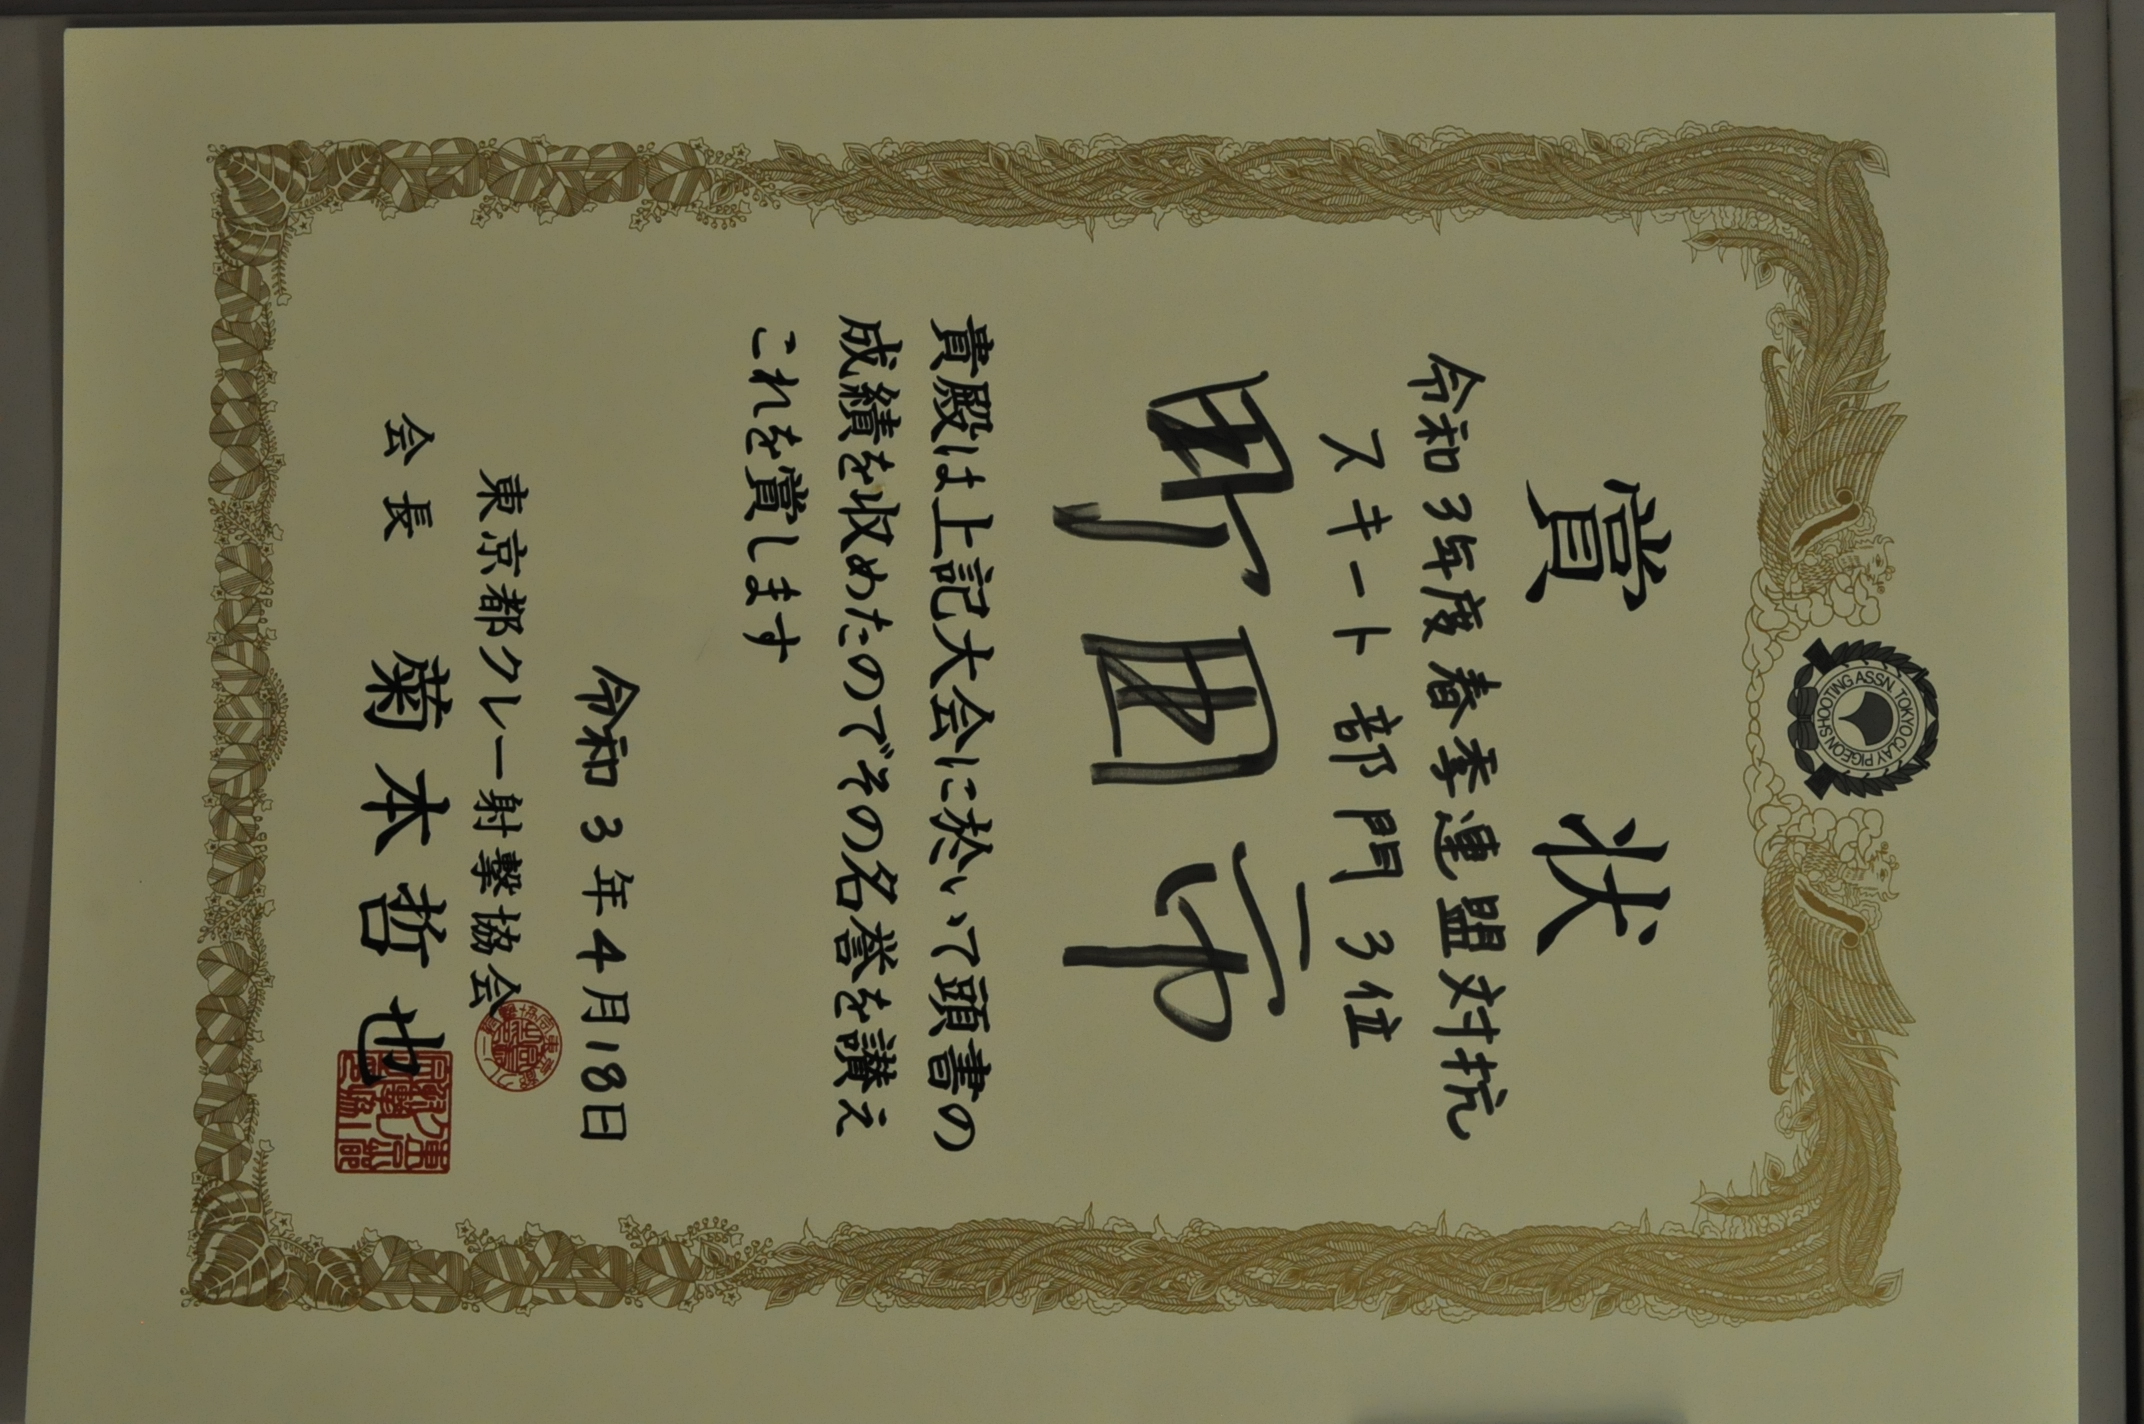 TOKYO CLAY PIGEON SHOOTING ASSN.
賞 状
令和3年度春季連盟対抗
スキート部門3位
町田市
貴殿は上記大会に於いて頭書の
成績を収めたのでその名誉を讃え
これを賞します
令和3年4月18日
東京都クレー射撃協会
会長 菊本哲也